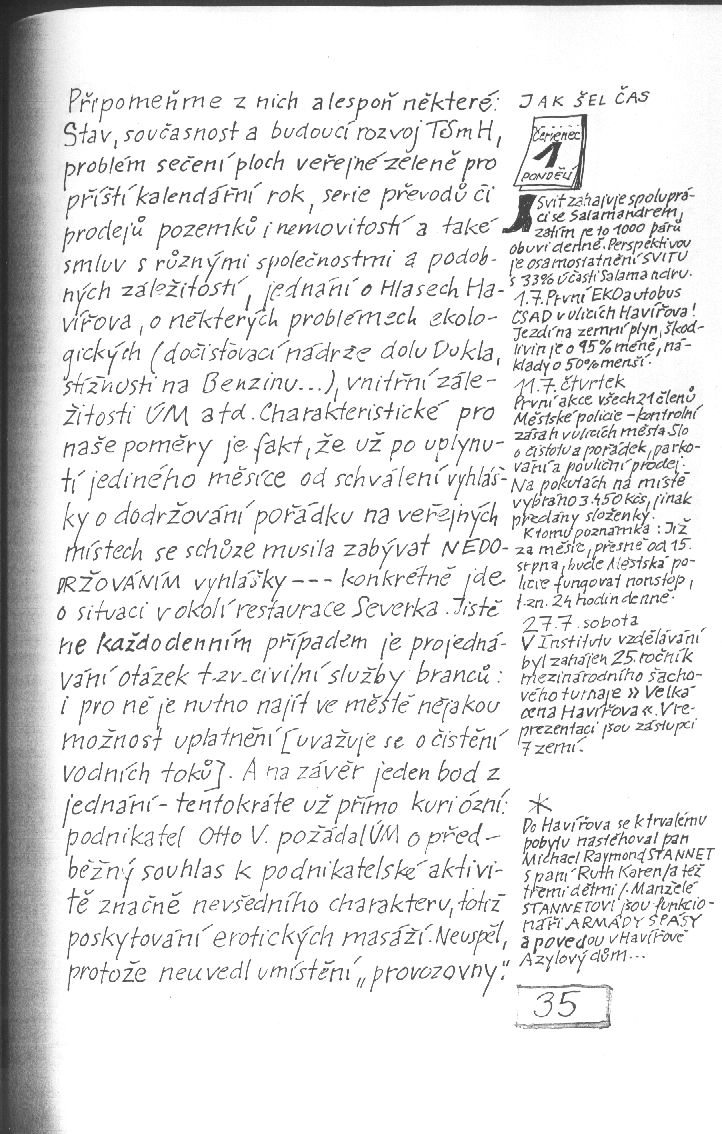 Připomeňme z nich alespoň některé:
Stav, současnost a budoucí rozvoj TSmH,
problém sečení ploch veřejné zeleně pro
příští kalendářní rok, serie převodů či
prodejů pozemků i nemovitostí a také
smluv s různými společnostmi a podob-
ných záležitostí, jednání o Hlasech Ha-
vířova, o některých problémech ekolo-
gických (dočisťovací nádrže dolu Dukla,
stížnosti na Benzinu...), vnitřní zále-
žitosti ÚM atd. Charakteristické pro
naše poměry je fakt, že už po uplynu-
tí jediného měsíce od schválení vyhláš-
ky o dodržování pořádku na veřejných
místech se schůze musila zabývat NEDO-
DRŽOVÁNÍM vyhlášky --- konkrétně jde
o situaci v okolí restaurace Severka. Jistě
ne každodenním případem je projedná-
vání otázek tzv. civilní služby branců:
i pro ně je nutno najít ve městě nějakou
možnost uplatnění [uvažuje se o čistění
vodních toků]. A na závěr jeden bod z
jednání - tentokráte už přímo kuriózní:
podnikatel Otto V. požádal ÚM o před-
běžný souhlas k podnikatelské aktivi-
tě značně nevšedního charakteru, totiž
poskytování erotických masáží. Neuspěl,
protože neuvedl umístění „provozovny."
JAK ŠEL ČAS
Červenec
1
PONDĚLÍ
Svit zahajuje spoluprá-
ci se Salamandrem,
zatím je to 1000 párů
obuvi denně. Perspektivou
je osamostatnění SVITU
s 33% účastí Salamandru.
1.7. První EKOautobus
ČSAD v ulicích Havířova!
Jezdí na zemní plyn, škod-
livin je o 95% méně, ná-
klady o 50% menší.
11.7. čtvrtek
První akce všech 21 členů
Městské policie - kontrolní
zásah v ulicích města. Šlo
o čistotu a pořádek, parko-
vání a pouliční prodej.
Na pokutách na místě
vybráno 3.450 kčs, jinak
předány složenky.
K tomu poznámka: Již
za měsíc, přesně od 15.
srpna, bude Městská po-
licie fungovat nonstop,
t.zn. 24 hodin denně.
27.7. sobota
V Institutu vzdělávání
byl zahájen 25. ročník
mezinárodního šacho-
vého turnaje » Velká
cena Havířova «. V re-
prezentaci jsou zástupci
7 zemí.
*
Do Havířova se k trvalému
pobytu nastěhoval pan
Michael Raymond STANNET
s paní Ruth Karen/a též
třemi dětmi/. Manželé
STANNETOVI jsou funkcio-
náři ARMÁDY SPÁSY
a povedou v Havířově
Azylový dům...
35